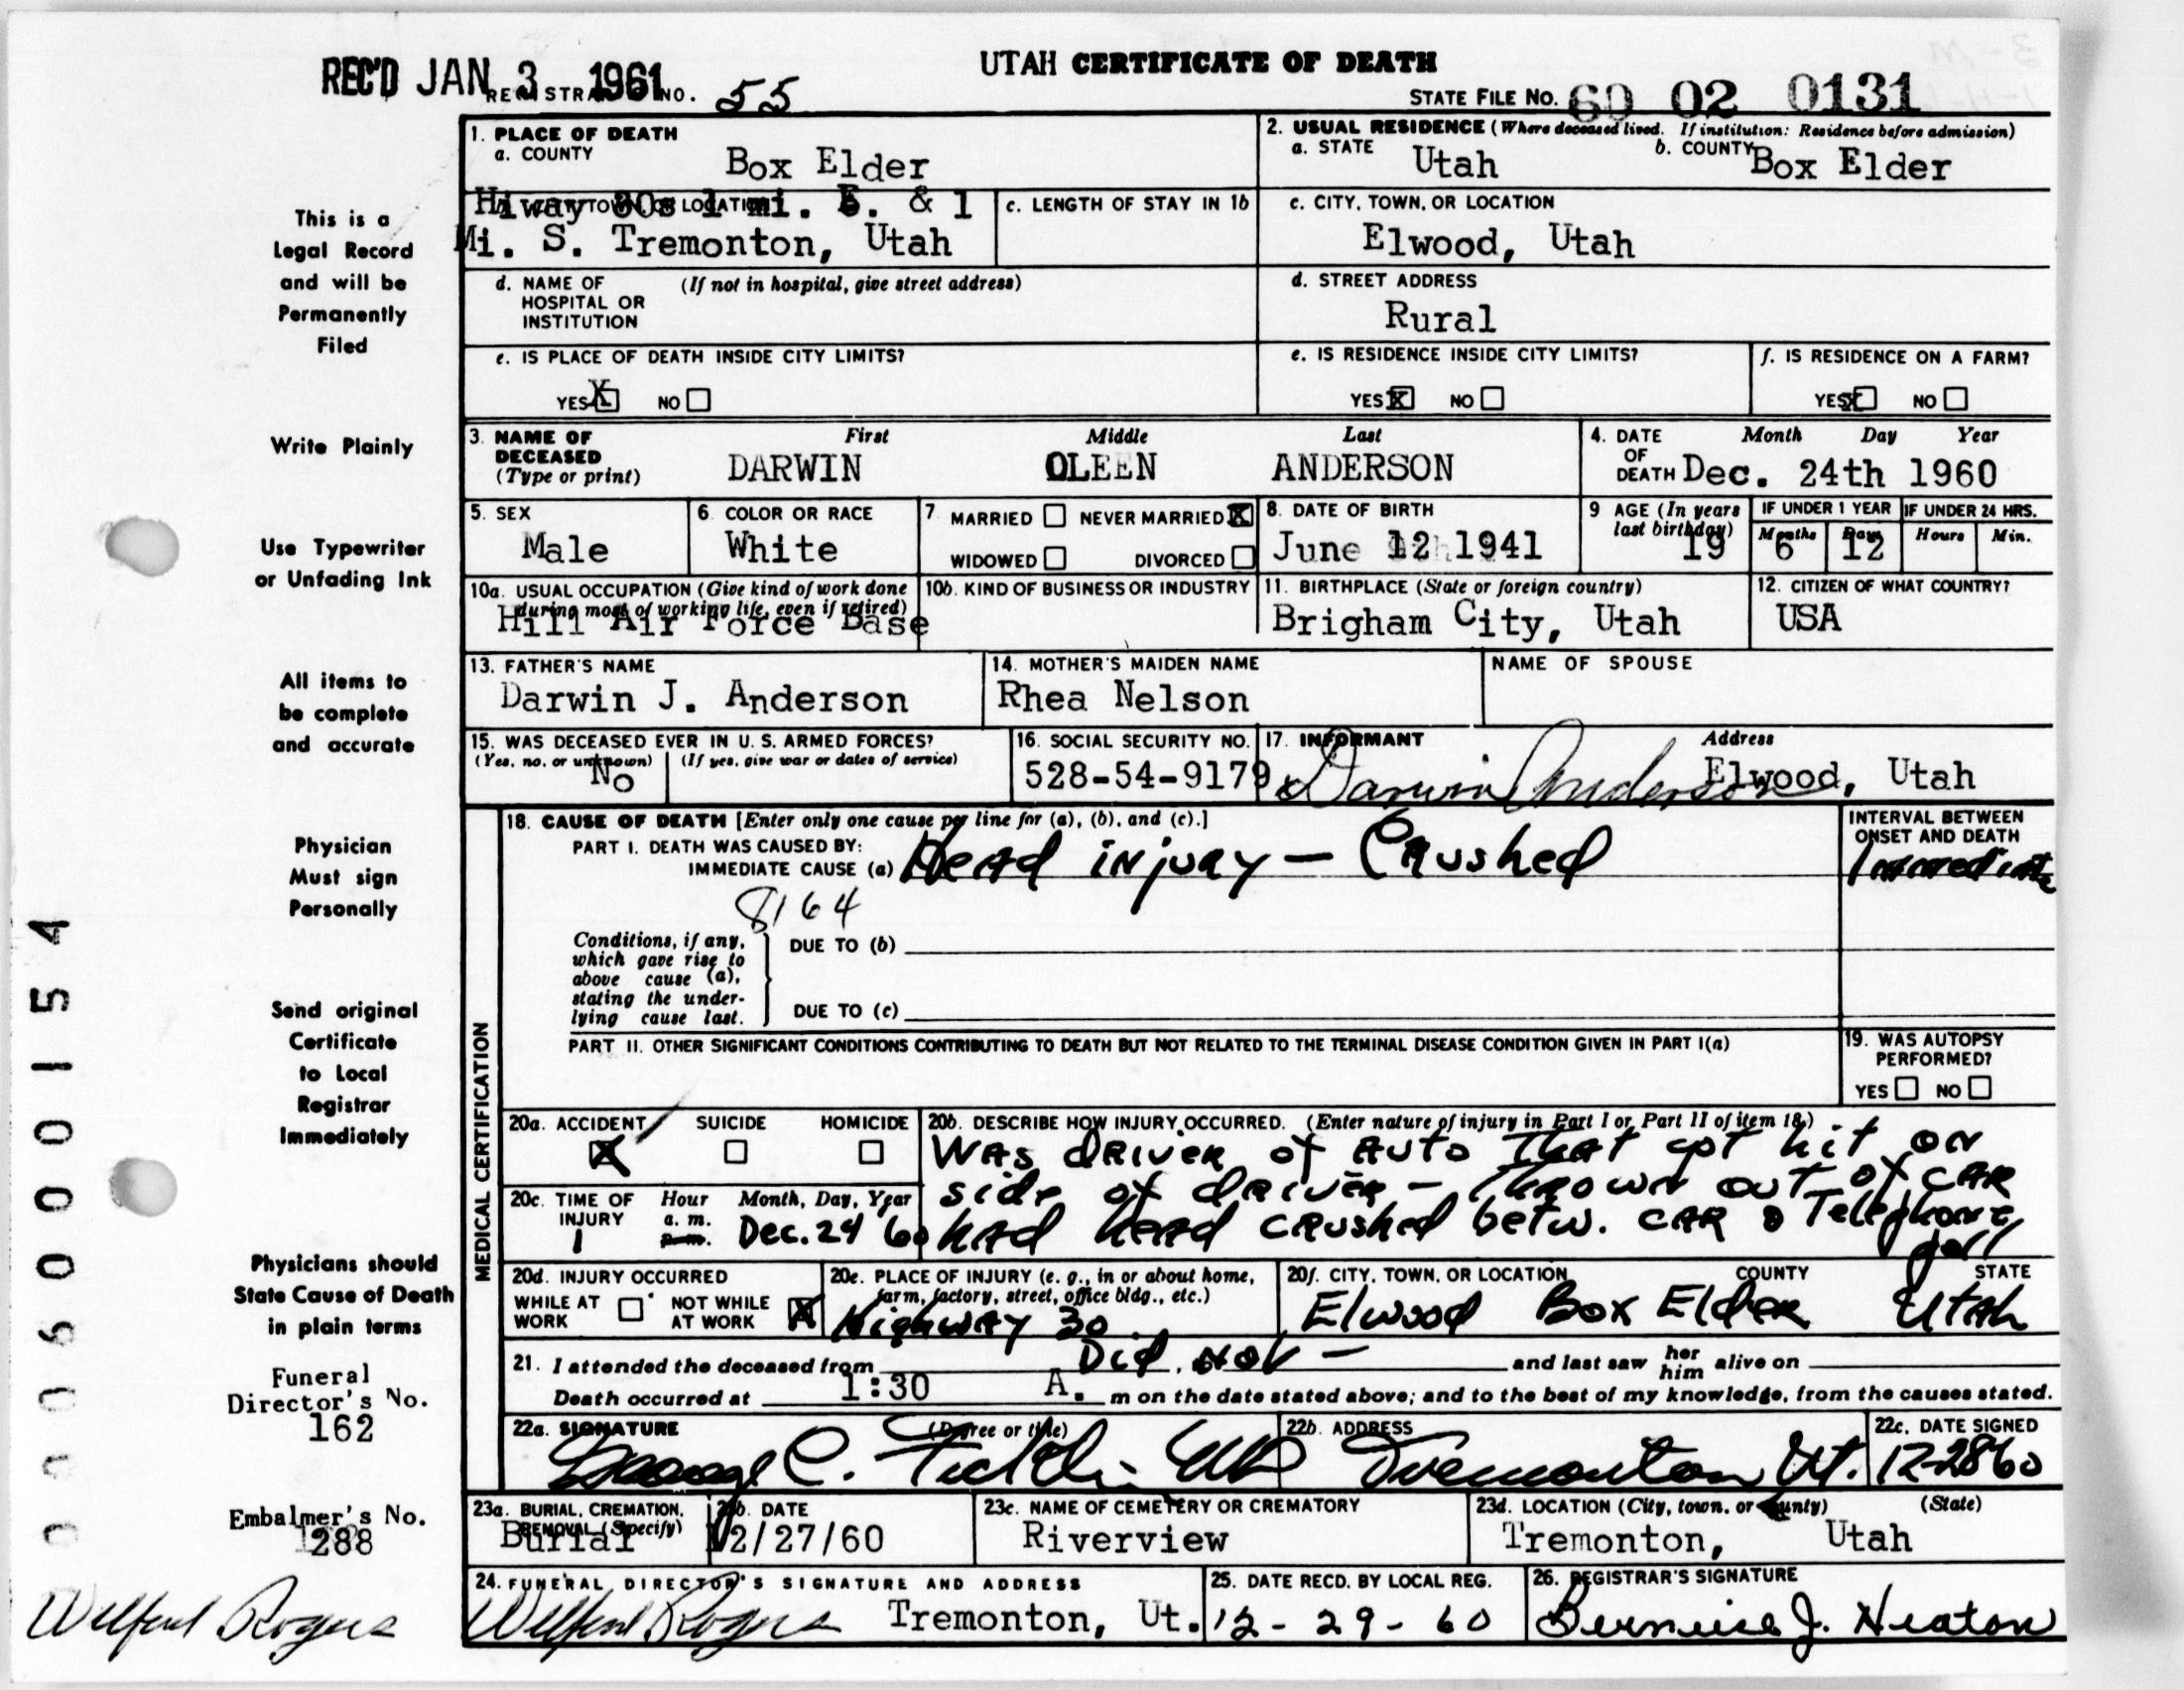 UTAH CERTIFICATE OF DEATH
REC'D JAN 3 1961
REGISTRAR NO. 55
STATE FILE No. 60 02 0131
1. PLACE OF DEATH
a. COUNTY
Box Elder
2. USUAL RESIDENCE (Where deceased lived. If institution: Residence before admission)
a. STATE Utah b. COUNTY Box Elder
Hiway 30s 1 mi. & 1
Mi. S. Tremonton, Utah
c. LENGTH OF STAY IN 1b
c. CITY, TOWN, OR LOCATION
Elwood, Utah
d. NAME OF HOSPITAL OR INSTITUTION (If not in hospital, give street address)
d. STREET ADDRESS
Rural
e. IS PLACE OF DEATH INSIDE CITY LIMITS?
YES X NO
e. IS RESIDENCE INSIDE CITY LIMITS?
YES X NO
f. IS RESIDENCE ON A FARM?
YES X NO
3. NAME OF DECEASED (Type or print)
First Middle Last
DARWIN OLEEN ANDERSON
4. DATE OF DEATH Month Day Year
Dec. 24th 1960
5. SEX
Male
6. COLOR OR RACE
White
7 MARRIED NEVER MARRIED X
WIDOWED DIVORCED
8. DATE OF BIRTH
June 12 1941
9 AGE (In years last birthday)
19
IF UNDER 1 YEAR
Months 6 Days 12
IF UNDER 24 HRS.
Hours Min.
10a. USUAL OCCUPATION (Give kind of work done during most of working life, even if retired)
Hill Air Force Base
10b. KIND OF BUSINESS OR INDUSTRY
11. BIRTHPLACE (State or foreign country)
Brigham City, Utah
12. CITIZEN OF WHAT COUNTRY?
USA
13. FATHER'S NAME
Darwin J. Anderson
14. MOTHER'S MAIDEN NAME
Rhea Nelson
NAME OF SPOUSE
15. WAS DECEASED EVER IN U. S. ARMED FORCES?
(Yes, no, or unknown) (If yes, give war or dates of service)
No
16. SOCIAL SECURITY NO.
528-54-9179
17. INFORMANT Address
Darwin Anderson Elwood, Utah
18. CAUSE OF DEATH [Enter only one cause per line for (a), (b), and (c).]
PART I. DEATH WAS CAUSED BY:
IMMEDIATE CAUSE (a) Head injury — Crushed
INTERVAL BETWEEN ONSET AND DEATH
Immediate
8164
Conditions, if any, which gave rise to above cause (a), stating the underlying cause last.
DUE TO (b)
DUE TO (c)
PART II. OTHER SIGNIFICANT CONDITIONS CONTRIBUTING TO DEATH BUT NOT RELATED TO THE TERMINAL DISEASE CONDITION GIVEN IN PART I(a)
19. WAS AUTOPSY PERFORMED?
YES NO
MEDICAL CERTIFICATION
20a. ACCIDENT X SUICIDE HOMICIDE
20b. DESCRIBE HOW INJURY OCCURRED. (Enter nature of injury in Part I or Part II of item 18.)
WAs driver of Auto That got hit on
side of driver - Thrown out of CAR
had head crushed betw. CAR & Telephone
poll
20c. TIME OF INJURY Hour Month, Day, Year
1 a. m. p. m. Dec. 24 '60
20d. INJURY OCCURRED
WHILE AT WORK NOT WHILE AT WORK X
20e. PLACE OF INJURY (e. g., in or about home, farm, factory, street, office bldg., etc.)
Highway 30
20f. CITY, TOWN, OR LOCATION COUNTY STATE
Elwood Box Elder Utah
21. I attended the deceased from Did Not — and last saw her him alive on
Death occurred at 1:30 A. m on the date stated above; and to the best of my knowledge, from the causes stated.
22a. SIGNATURE (Degree or title)
George C. MD
22b. ADDRESS
Tremonton Ut.
22c. DATE SIGNED
12-28-60
23a. BURIAL, CREMATION, REMOVAL (Specify)
Burial
23b. DATE
12/27/60
23c. NAME OF CEMETERY OR CREMATORY
Riverview
23d. LOCATION (City, town, or county) (State)
Tremonton, Utah
24. FUNERAL DIRECTOR'S SIGNATURE AND ADDRESS
Wilford Rogers Tremonton, Ut.
25. DATE RECD. BY LOCAL REG.
12-29-60
26. REGISTRAR'S SIGNATURE
Berniece J. Heaton
This is a
Legal Record
and will be
Permanently
Filed
Write Plainly
Use Typewriter
or Unfading Ink
All items to
be complete
and accurate
Physician
Must sign
Personally
Send original
Certificate
to Local
Registrar
Immediately
Physicians should
State Cause of Death
in plain terms
Funeral
Director's No.
162
Embalmer's No.
288
Wilford Rogers